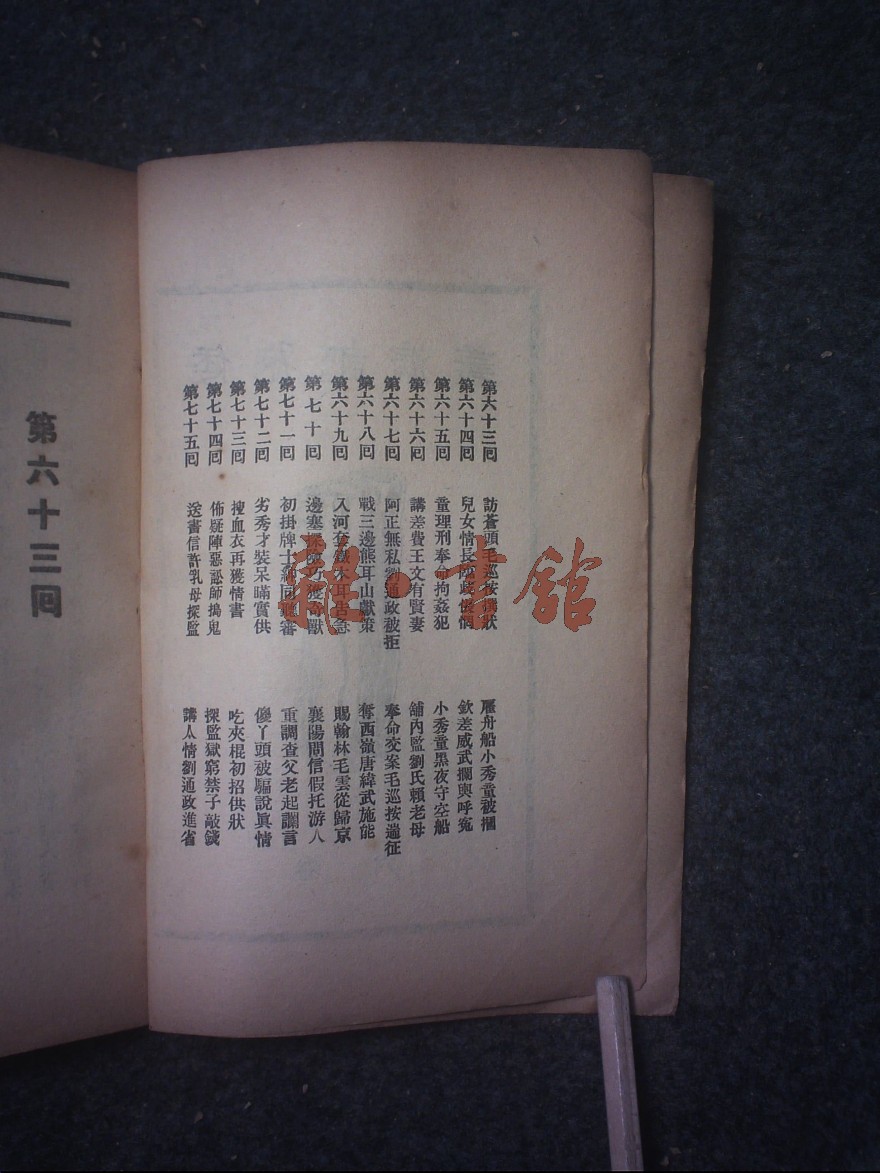 第六十三回 訪蒼頭毛巡按 狀 雁舟船小秀童被擱
第六十四回 兒女情長 欽差威武攔輿呼冤
第六十五回 童理刑奉命拘姦犯 小秀童黑夜守空船
第六十六回 講差費王文有賢妻 舖內監劉氏賴老母
第六十七回 阿正無私劉通政被拒 奉命交案毛巡按遄征
第六十八回 戰三邊熊耳山獻策 奪西嶺唐緯武施能
第六十九回 入河套鐵木耳告急 賜翰林毛雲從歸京
第七十回 邊塞探險巧獲奇獸 襄陽問信假托游人
第七十一回 初掛牌十 回聽審 重調查父老起讕言
第七十二回 劣秀才裝呆瞞實供 傻丫頭被騙說眞情
第七十三回 搜血衣再獲情書 吃夾棍初招供狀
第七十四回 佈疑陣惡訟師搗鬼 探監獄窮禁子敲錢
第七十五回 送書信許乳母探監 講人情劉通政進省
第六十三回
龍·書館